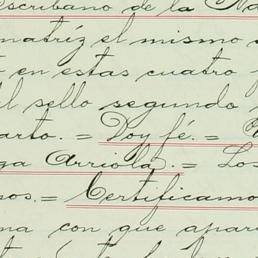 escribano de la Na
matríz el mismo
en estas cuatro
el sello segundo
arto. = Doy fé. =
ga Arriola. = Los
nos. = Certificamos
ma con que apar